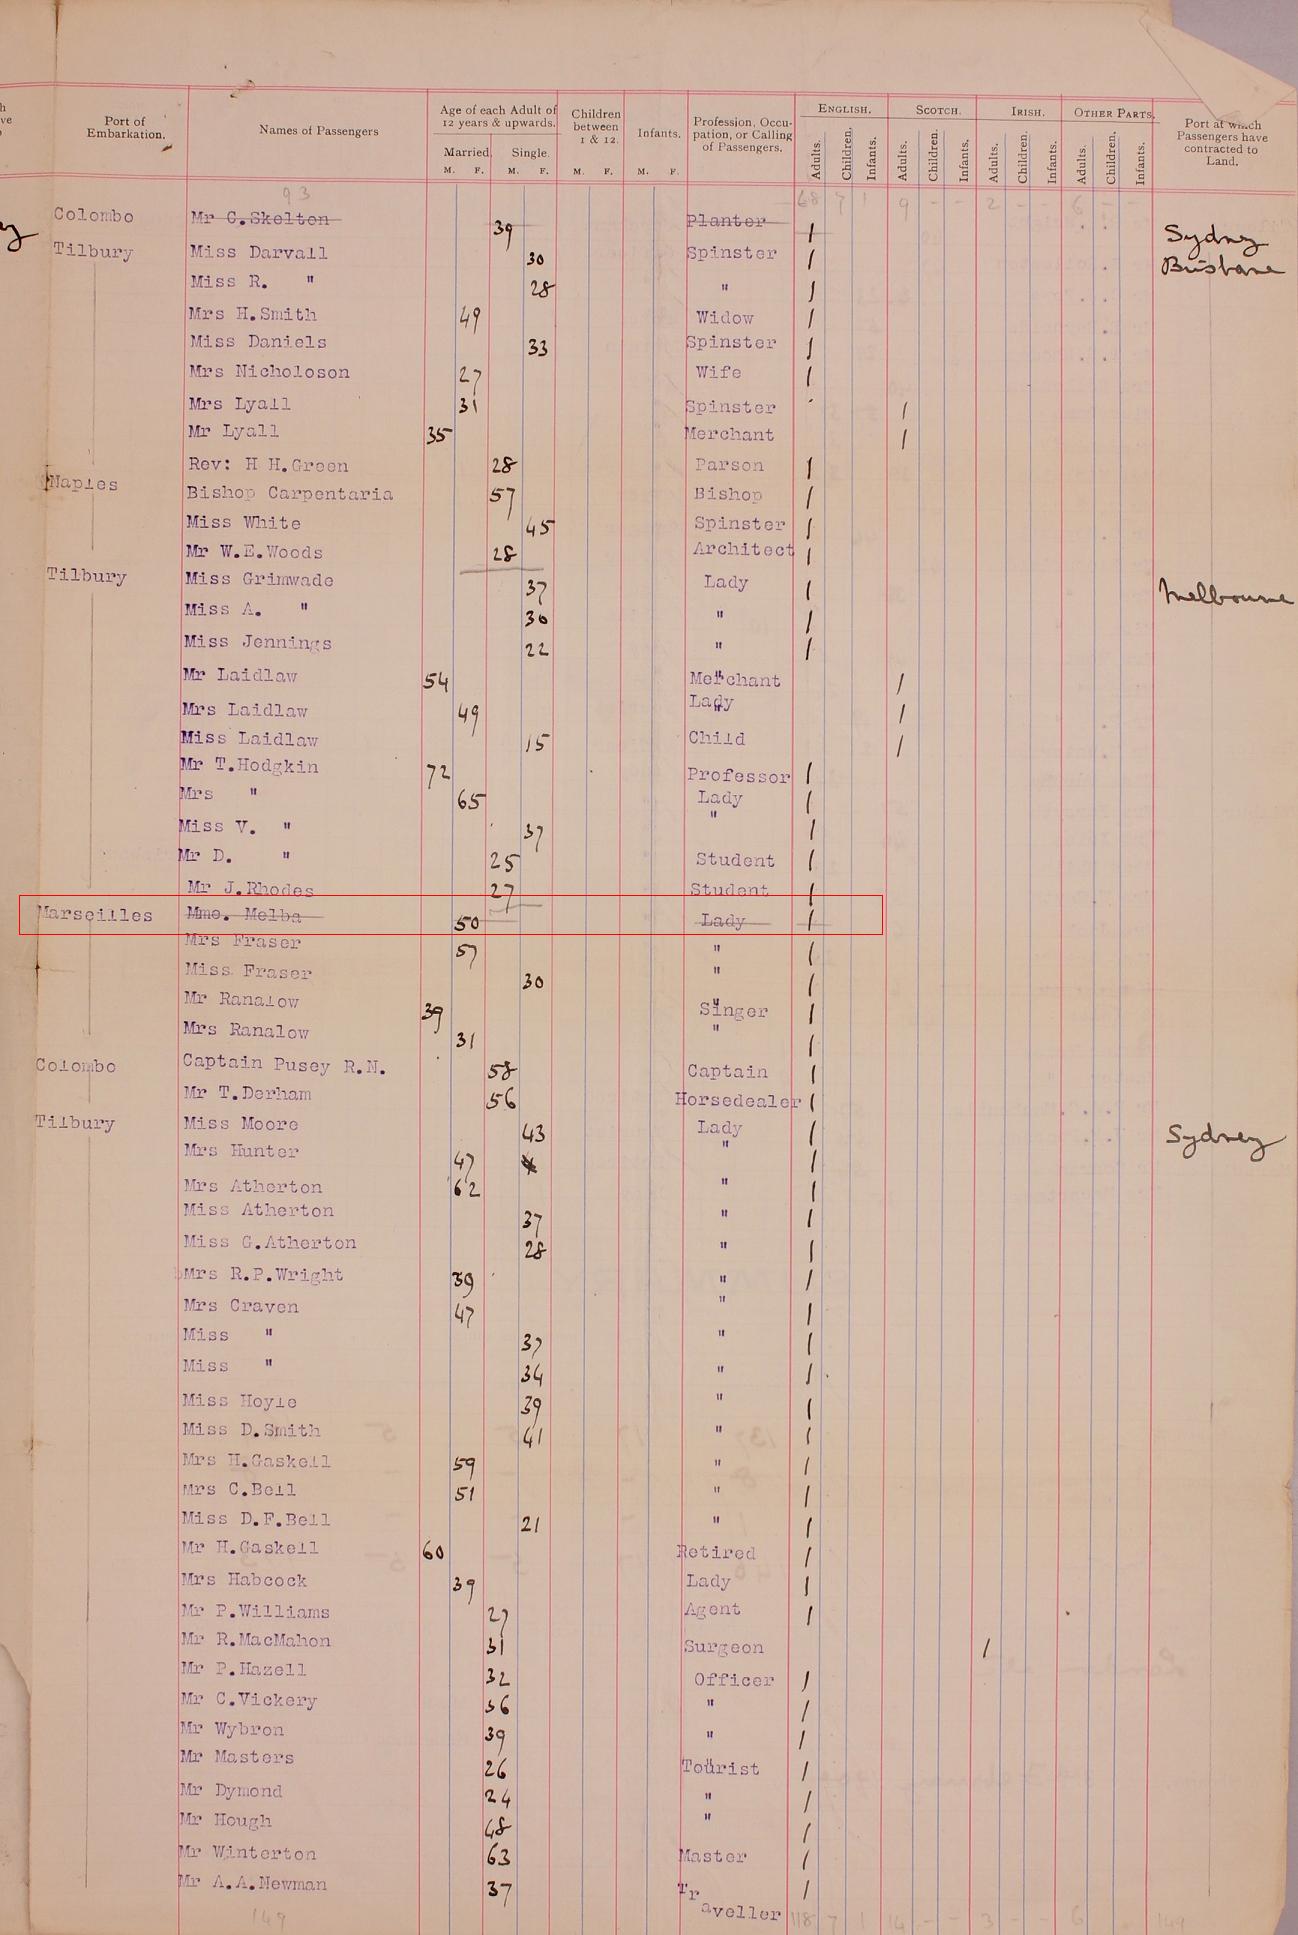 Port of Embarkation. Names of Passengers Age of each Adult of 12 years & upwards. Children between 1 & 12. Infants. Profession, Occupation, or Calling of Passengers. ENGLISH. SCOTCH. IRISH. OTHER PARTS. Port at which Passengers have contracted to Land.
Married. Single.
M. F. M. F. M. F. M. F. Adults. Children. Infants. Adults. Children. Infants. Adults. Children. Infants. Adults. Children. Infants.
93 68 7 1 9 - - 2 - - 6 - -
Colombo Mr C.Skelton 39 Planter 1 Sydney
Tilbury Miss Darvall 30 Spinster 1 Brisbane
Miss R. " 28 " 1
Mrs H.Smith 49 Widow 1
Miss Daniels 33 Spinster 1
Mrs Nicholoson 27 Wife 1
Mrs Lyall 31 Spinster 1
Mr Lyall 35 Merchant 1
Rev: H H.Green 28 Parson 1
Naples Bishop Carpentaria 57 Bishop 1
Miss White 45 Spinster 1
Mr W.E.Woods 28 Architect 1
Tilbury Miss Grimwade 37 Lady 1 Melbourne
Miss A. " 30 " 1
Miss Jennings 22 " 1
Mr Laidlaw 54 Merchant 1
Mrs Laidlaw 49 Lady 1
Miss Laidlaw 15 Child 1
Mr T.Hodgkin 72 Professor 1
Mrs " 65 Lady 1
Miss V. " 37 " 1
Mr D. " 25 Student 1
Mr J.Rhodes 27 Student 1
Marseilles Mme. Melba 50 Lady 1
Mrs Fraser 57 " 1
Miss Fraser 30 " 1
Mr Ranalow 39 Singer 1
Mrs Ranalow 31 " 1
Colombo Captain Pusey R.N. 58 Captain 1
Mr T.Derham 56 Horsedealer 1
Tilbury Miss Moore 43 Lady 1 Sydney
Mrs Hunter 47 " 1
Mrs Atherton 62 " 1
Miss Atherton 37 " 1
Miss G.Atherton 28 " 1
Mrs R.P.Wright 39 " 1
Mrs Craven 47 " 1
Miss " 37 " 1
Miss " 34 " 1
Miss Hoyle 39 " 1
Miss D.Smith 41 " 1
Mrs H.Gaskell 59 " 1
Mrs C.Bell 51 " 1
Miss D.F.Bell 21 " 1
Mr H.Gaskell 60 Retired 1
Mrs Habcock 39 Lady 1
Mr P.Williams 27 Agent 1
Mr R.MacMahon 31 Surgeon 1
Mr P.Hazell 32 Officer 1
Mr C.Vickery 36 " 1
Mr Wybron 39 " 1
Mr Masters 26 Tourist 1
Mr Dymond 24 " 1
Mr Hough 48 " 1
Mr Winterton 63 Master 1
Mr A.A.Newman 37 Traveller 1
149 118 7 1 14 - - 3 - - 6 149